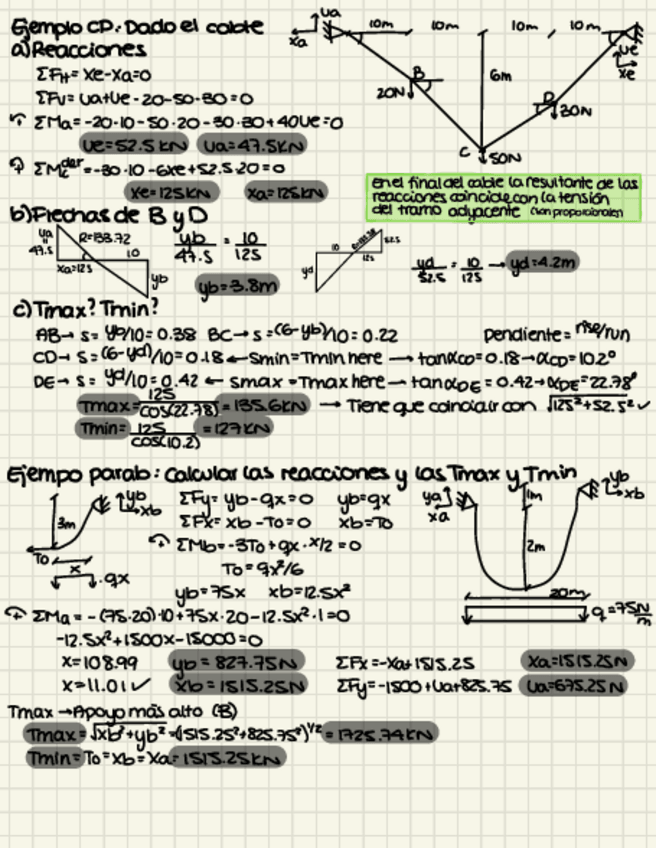 Ejemplo CD: Dado el cable
a) Reacciones
ΣFH = Xe-Xa=0
ΣFv = Ya+Ye-20-50-30=0
ΣMa=-20·10-50·20-30·30+40Ye=0
Ye=52.5KN Ya=47.5KN
ΣMc^der=-30·10-6Xe+52.5·20=0
Xe=125KN Xa=125KN
Ya
Xa
10m 10m 10m 10m
Ye
Xe
6m
B
20N
D
30N
C
50N
en el final del cable la resultante de las
reacciones coincide con la tensión
del tramo adyacente (son proporcionales)
b) Flechas de B y D
Ya
47.5
R=133.72
Xa=125
10
yb
yb/47.5 = 10/125
yb=3.8m
10
52.5
125
yd
yd/52.5 = 10/125 → yd=4.2m
c) Tmax? Tmin?
AB→ s= yb/10=0.38 BC→ s=(6-yb)/10=0.22 Pendiente= rise/run
CD→ s=(6-yd)/10=0.18 ← Smin=Tmin here → tanαCD=0.18→αCD=10.2°
DE→ s= yd/10=0.42 ← smax=Tmax here → tanαDE=0.42→αDE=22.78°
Tmax= 125/cos(22.78) = 135.6KN → Tiene que coincidir con √125²+52.5² ✓
Tmin= 125/cos(10.2) = 127KN
Ejempo parab: Calcular las reacciones y las Tmax y Tmin
3m
yb
xb
To
x
qx
ΣFy= yb-qx=0 yb=qx
ΣFx= xb-To=0 xb=To
ΣMb=-3To+qx·x/2=0
To=qx²/6
yb=75x xb=12.5x²
ya
xa
1m
2m
yb
xb
20m
q=75N/m
ΣMa=-(75·20)·10+75x·20-12.5x²·1=0
-12.5x²+1500x-15000=0
x=108.99 yb=827.75N ΣFx=-Xa+1515.25 Xa=1515.25N
x=11.01✓ xb=1515.25N ΣFy=-1500+Ya+825.75 Ya=675.25N
Tmax→Apoyo más alto (B)
Tmax=√xb²+yb²=(1515.25²+825.75²)^1/2=1725.74KN
Tmin=To=xb=Xa=1515.25KN